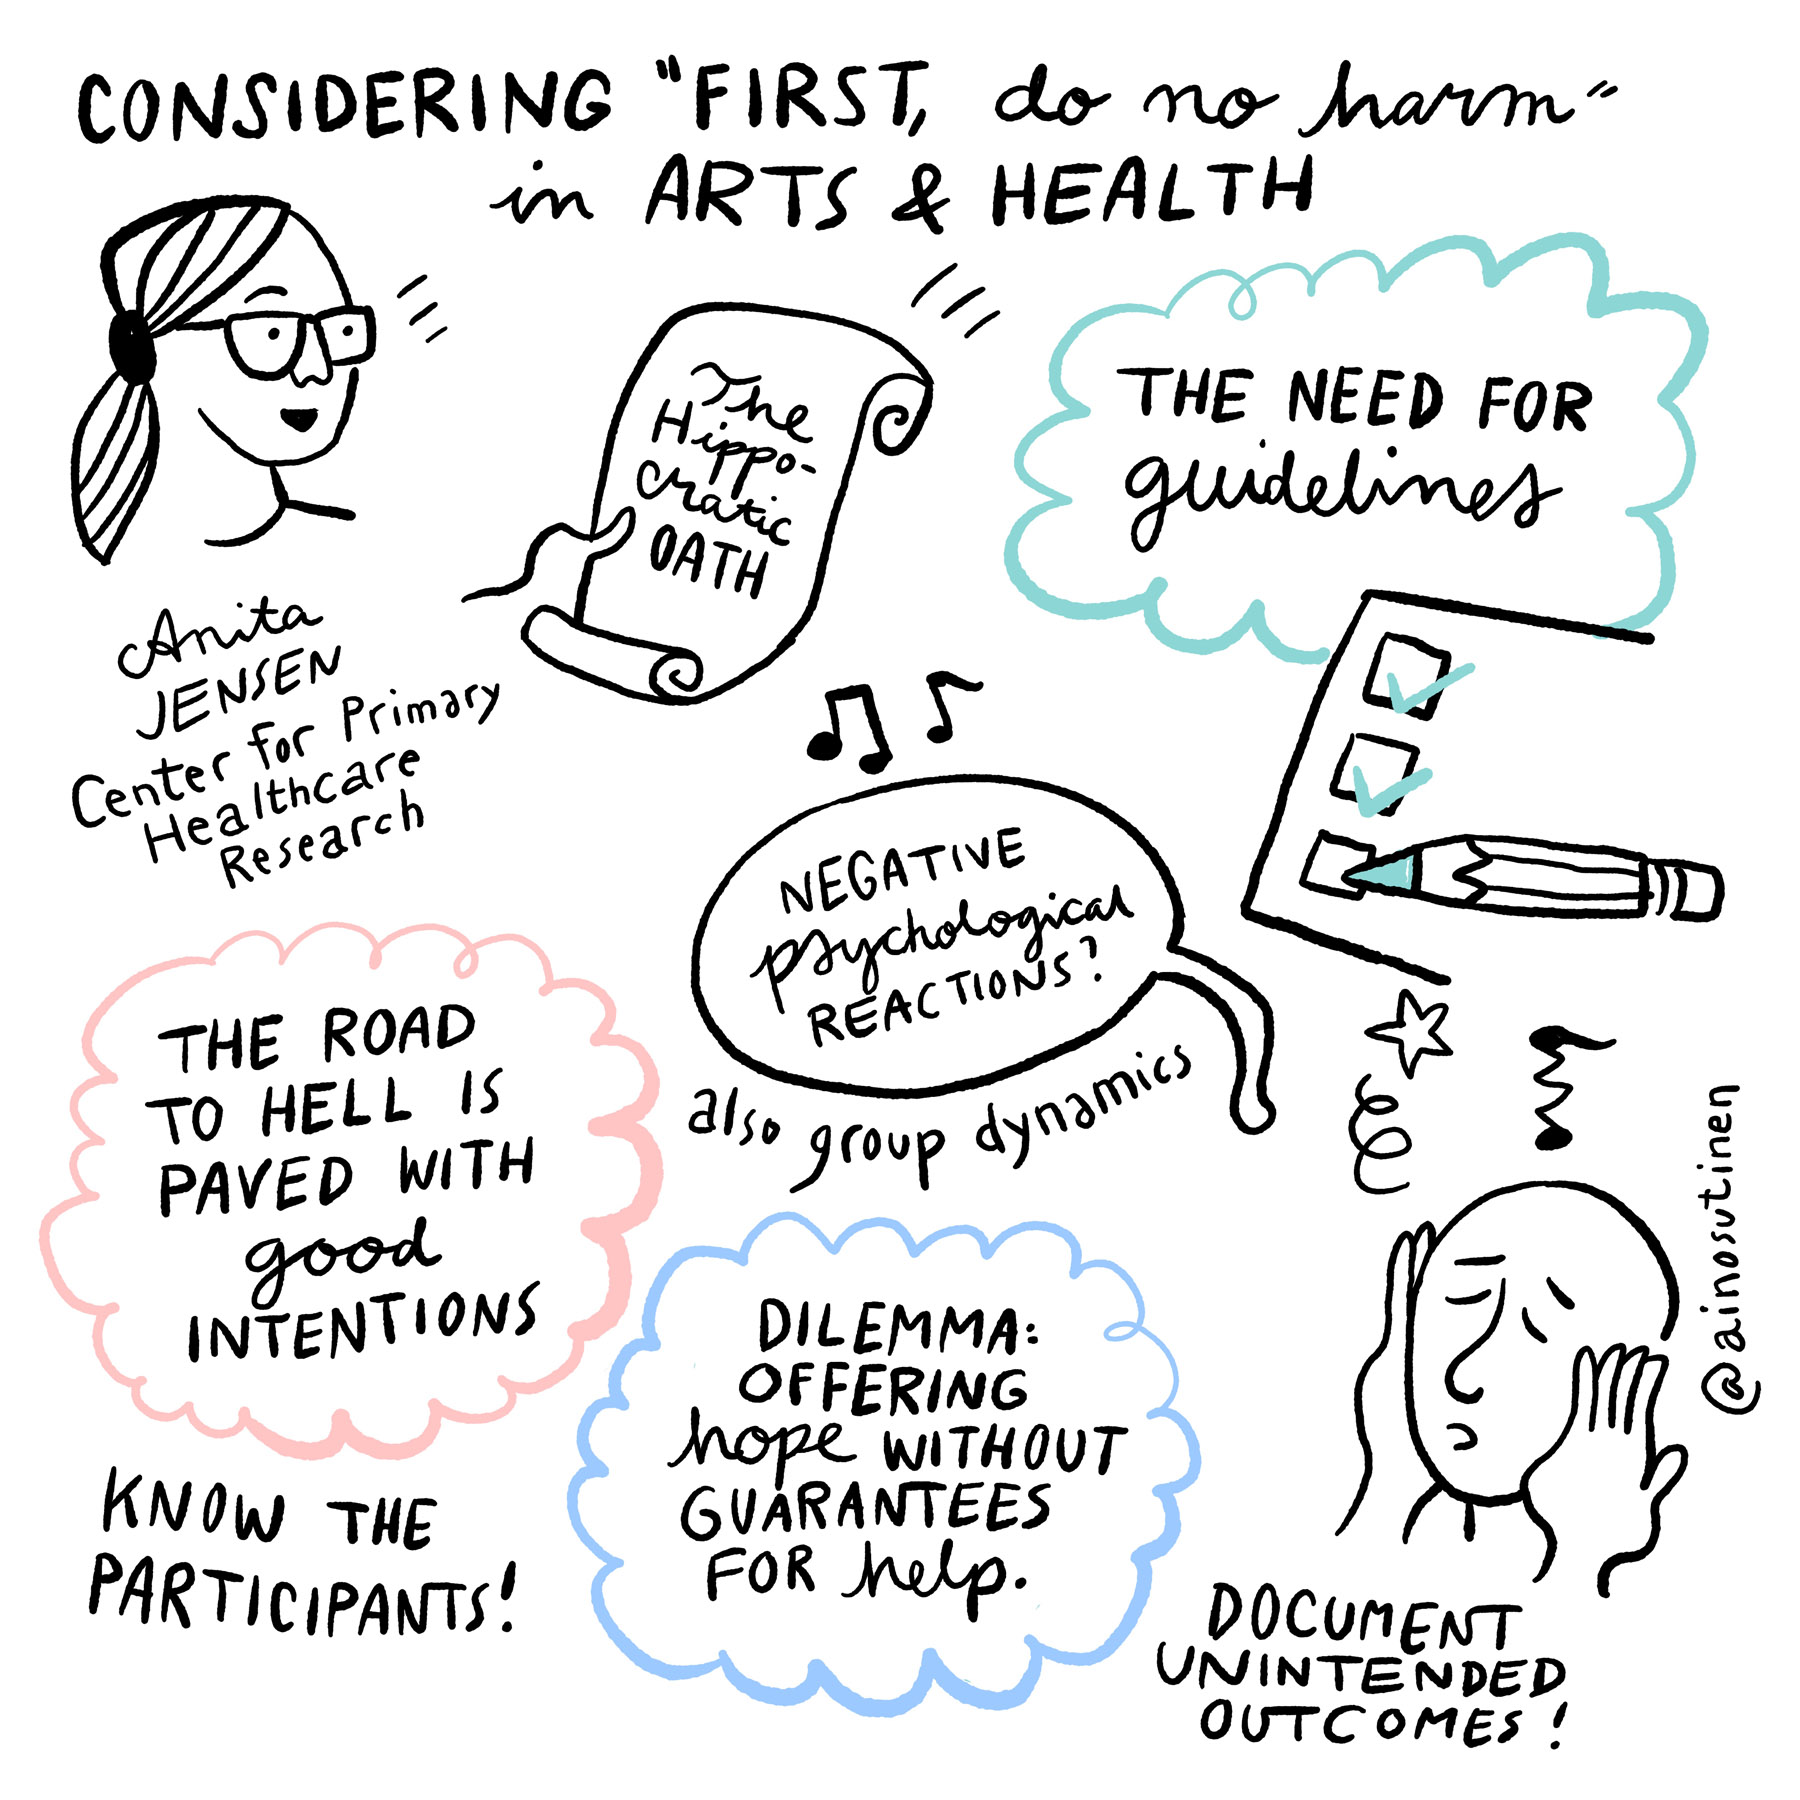 CONSIDERING "FIRST, do no harm"
in ARTS & HEALTH
The
Hippo-
cratic
OATH
THE NEED FOR
guidelines
Anita
JENSEN
Center for Primary
Healthcare
Research
NEGATIVE
psychological
REACTIONS?
also group dynamics
THE ROAD
TO HELL IS
PAVED WITH
good
INTENTIONS
KNOW THE
PARTICIPANTS!
DILEMMA:
OFFERING
hope WITHOUT
GUARANTEES
FOR help.
DOCUMENT
UNINTENDED
OUTCOMES!
@ainosutinen